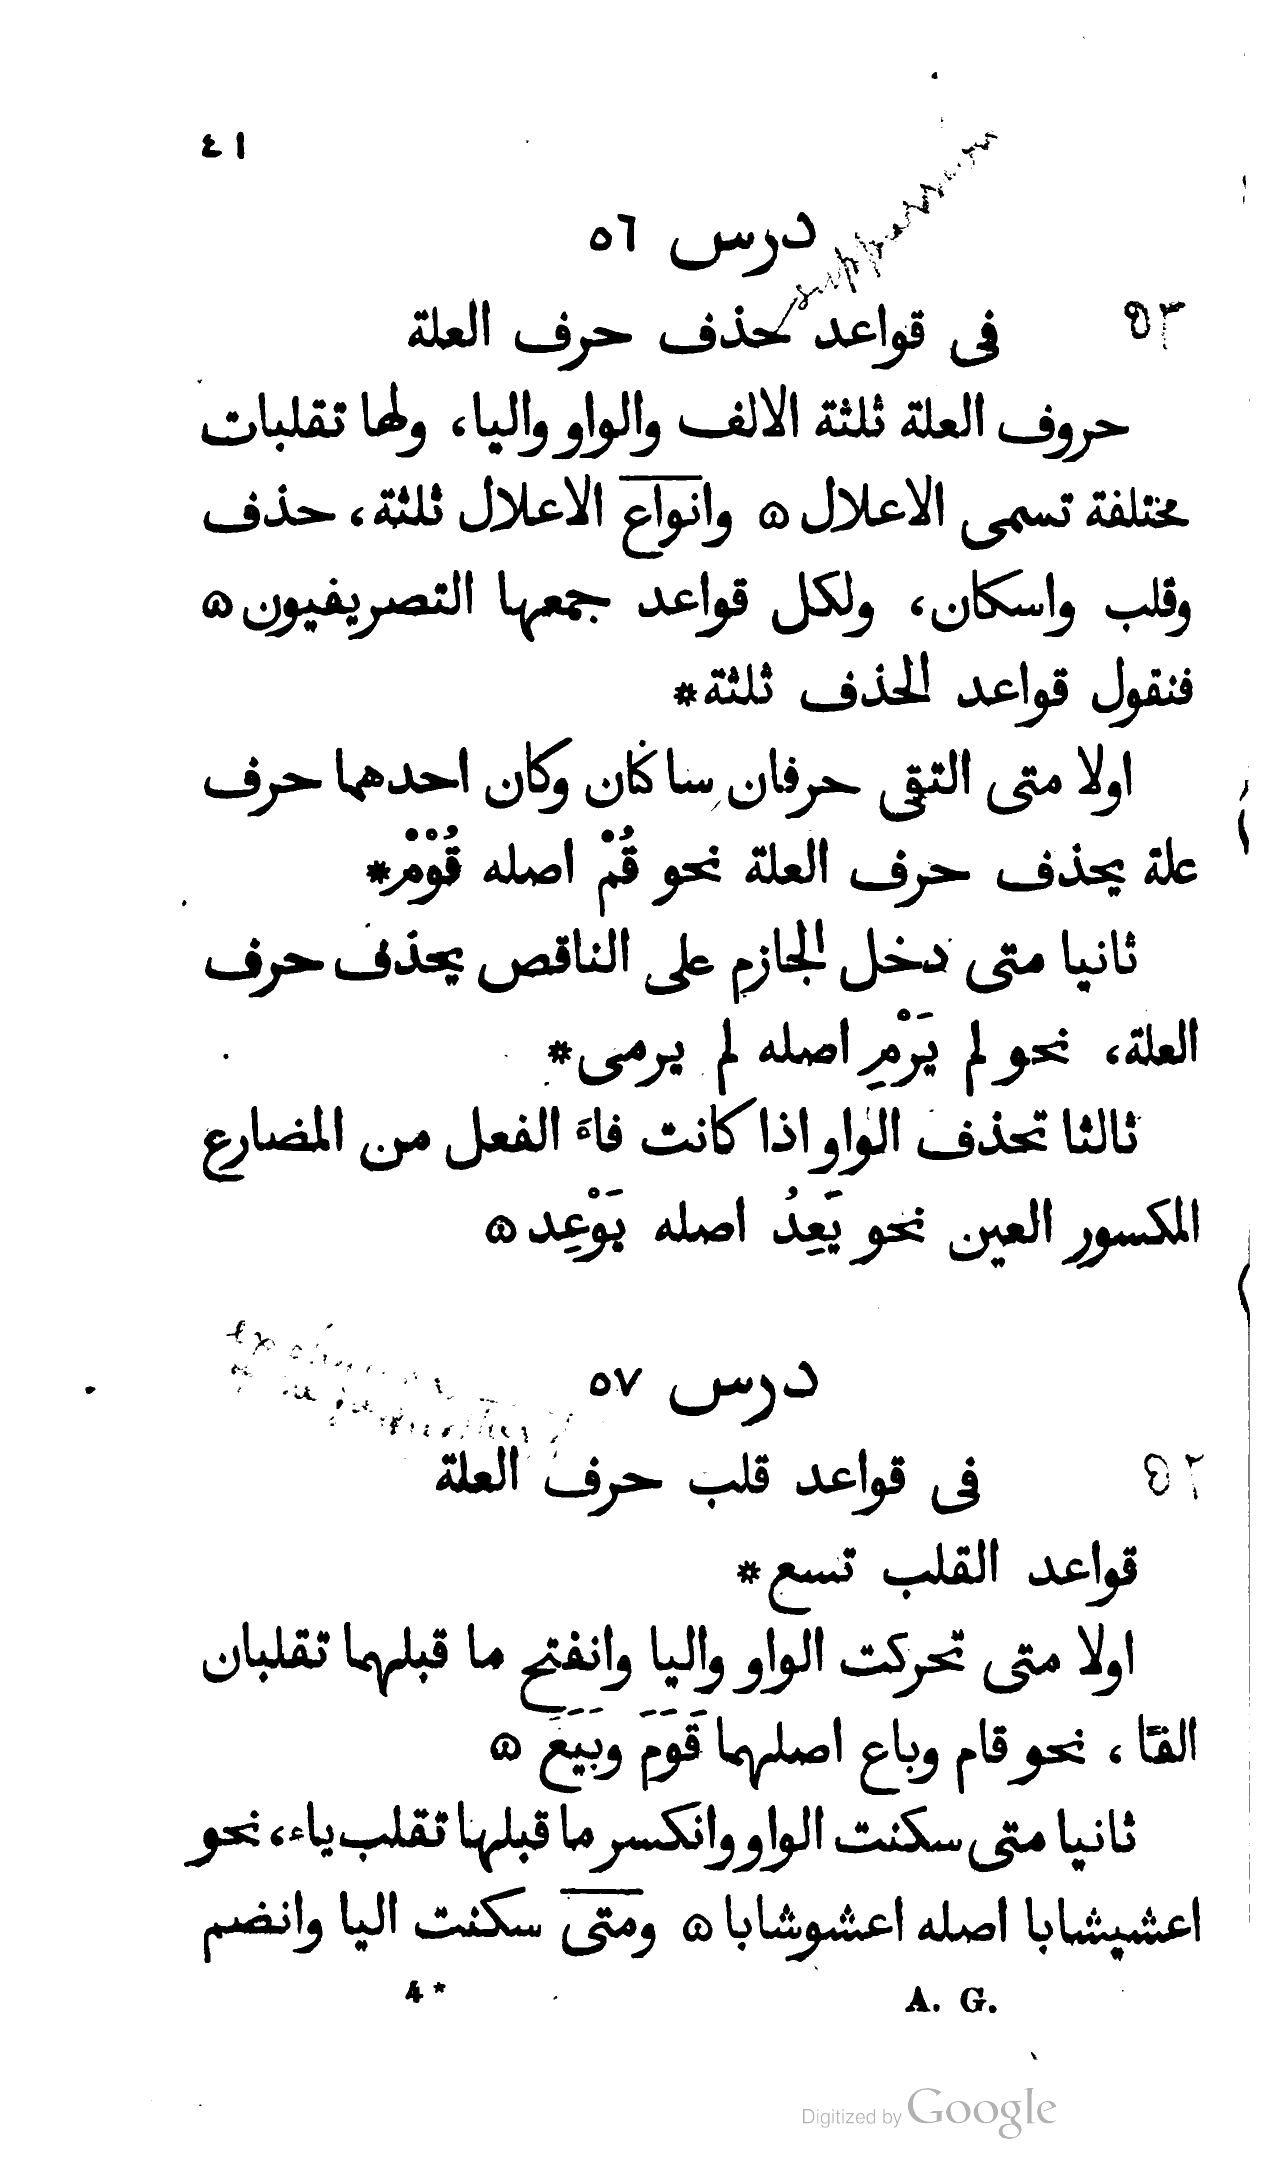 ٤١
درس ٥٦
فى قواعد حذف حرف العلة
حروف العلة ثلثة الالف والواو واليا، ولها تقلبات
مختلفة تسمى الاعلال ۞ وانواع الاعلال ثلثة، حذف
وقلب واسكان، ولكل قواعد جمعها التصريفيون ۞
فنقول قواعد الحذف ثلثة*
اولا متى التقى حرفان ساكنان وكان احدهما حرف
علة يحذف حرف العلة نحو قُمْ اصله قُوْمْ*
ثانيا متى دخل الجازم على الناقص يحذف حرف
العلة، نحو لم يَرْمِ اصله لم يرمى*
ثالثا تحذف الواو اذا كانت فاءَ الفعل من المضارع
المكسور العين نحو يَعِدُ اصله يَوْعِد ۞
درس ٥٧
فى قواعد قلب حرف العلة
قواعد القلب تسع*
اولا متى تحركت الواو واليا وانفتح ما قبلهما تقلبان
الفًا، نحو قام وباع اصلهما قَوَمَ وبَيَعَ ۞
ثانيا متى سكنت الواو وانكسر ما قبلها تقلب ياء، نحو
اعشيشابا اصله اعشوشابا ۞ ومتى سكنت اليا وانضم
A. G. 4*
Digitized by Google